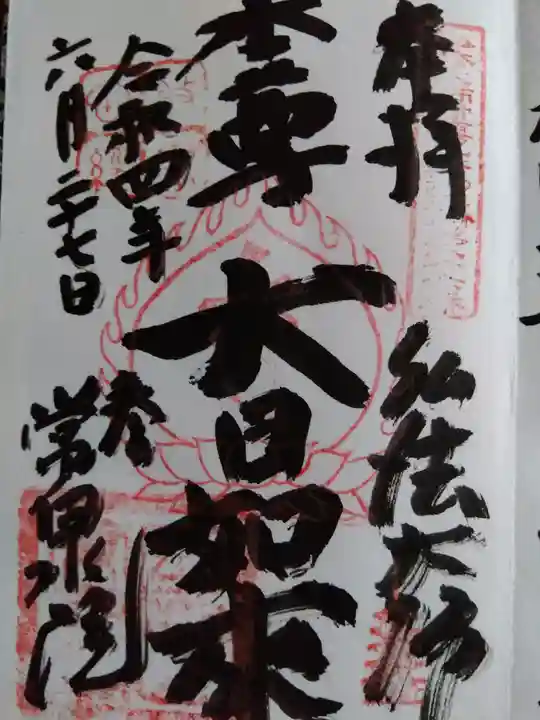 奉拝
弘法大師
本尊
大日如来
令和四年
六月二十七日
参
常泉院